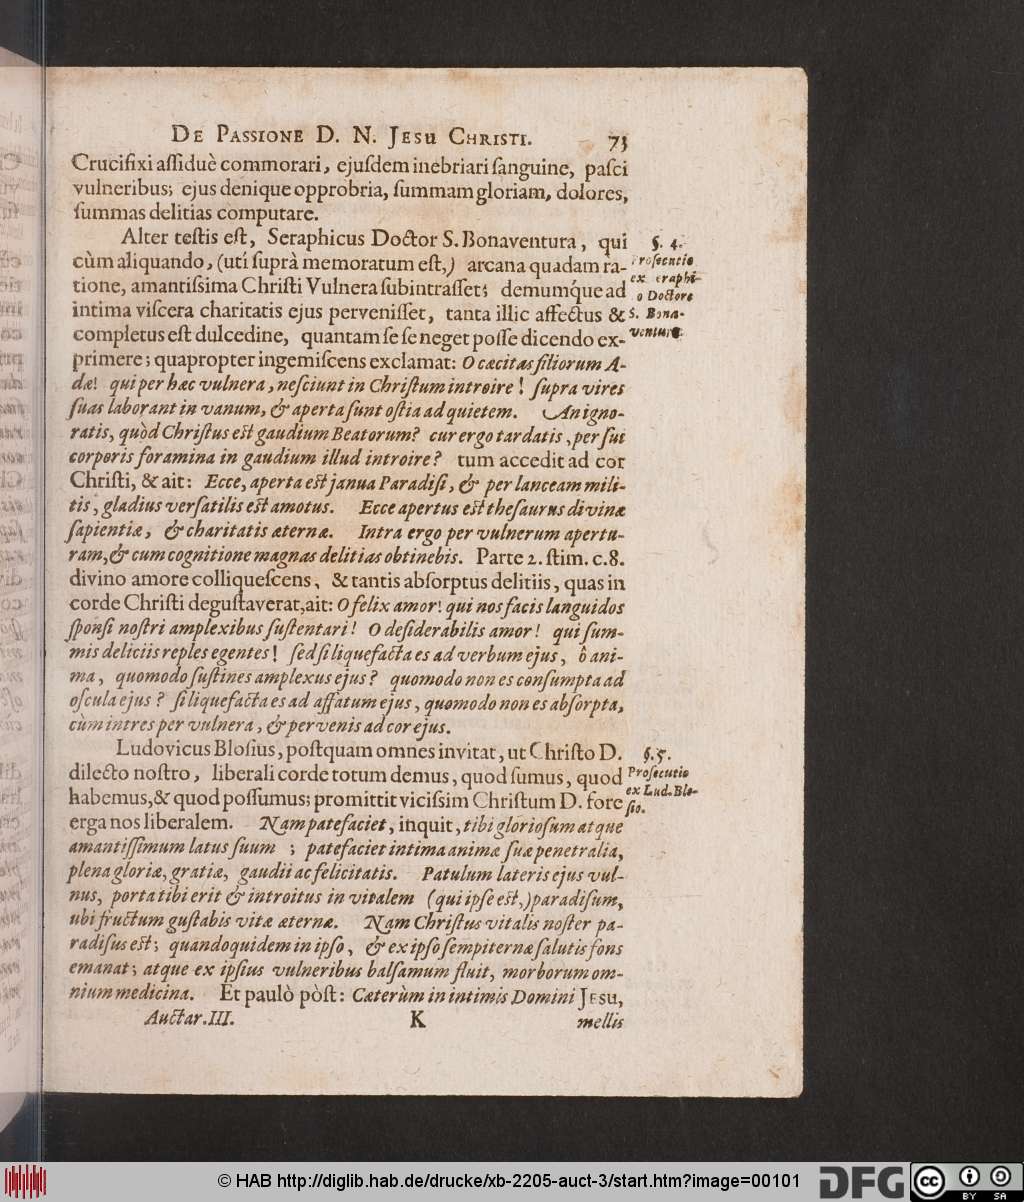 DE PASSIONE D. N. JESU CHRISTI. 73
Crucifixi aſſiduè commorari, ejuſdem inebriari ſanguine, paſci
vulneribus; ejus denique opprobria, ſummam gloriam, dolores,
ſummas delitias computare.
Alter teſtis eſt, Seraphicus Doctor S. Bonaventura, qui
cùm aliquando, (utí ſuprà memoratum eſt,) arcana quadam ra-
tione, amantiſsima Chriſti Vulnera ſubintraſſet; demumq́ue ad
intima viſcera charitatis ejus perveniſſet, tanta illic affectus &
completus eſt dulcedine, quantam ſe ſe neget poſſe dicendo ex-
primere; quapropter ingemiſcens exclamat: O cæcitas filiorum A-
dæ! qui per hæc vulnera, neſciunt in Chriſtum introire! ſupra vires
ſuas laborant in vanum, & aperta ſunt oſtia ad quietem. An igno-
ratis, quòd Chriſtus eſt gaudium Beatorum? cur ergo tardatis, per ſui
corporis foramina in gaudium illud introire? tum accedit ad cor
Chriſti, & ait: Ecce, aperta eſt janua Paradiſi, & per lanceam mili-
tis, gladius verſatilis eſt amotus. Ecce apertus eſt theſaurus divinæ
ſapientiæ, & charitatis æternæ. Intra ergo per vulnerum apertu-
ram, & cum cognitione magnas delitias obtinebis. Parte 2. ſtim. c. 8.
divino amore colliqueſcens, & tantis abſorptus delitiis, quas in
corde Chriſti deguſtaverat, ait: O felix amor! qui nos facis languidos
ſponſi noſtri amplexibus ſuſtentari! O deſiderabilis amor! qui ſum-
mis deliciis reples egentes! ſed ſi liquefacta es ad verbum ejus, ô ani-
ma, quomodo ſuſtines amplexus ejus? quomodo non es conſumpta ad
oſcula ejus? ſi liquefacta es ad affatum ejus, quomodo non es abſorpta,
cùm intres per vulnera, & pervenis ad cor ejus.
Ludovicus Bloſius, poſtquam omnes invitat, ut Chriſto D.
dilecto noſtro, liberali corde totum demus, quod ſumus, quod
habemus, & quod poſſumus; promittit viciſsim Chriſtum D. fore
erga nos liberalem. Nam patefaciet, inquit, tibi glorioſum atque
amantiſſimum latus ſuum ; patefaciet intima animæ ſuæ penetralia,
plena gloriæ, gratiæ, gaudii ac felicitatis. Patulum lateris ejus vul-
nus, porta tibi erit & introitus in vitalem (qui ipſe eſt,) paradiſum,
ubi fructum guſtabis vitæ æternæ. Nam Chriſtus vitalis noſter pa-
radiſus eſt; quandoquidem in ipſo, & ex ipſo ſempiternæ ſalutis fons
emanat; atque ex ipſius vulneribus balſamum fluit, morborum om-
nium medicina. Et paulò pòſt: Cæterùm in intimis Domini JESU,
Auctar. III. K mellis
§. 4.
Proſecutio
ex
Doctore
S. Bona-
ventura.
§. 5.
Proſecutio
ex Lud. Blo-
ſio.
© HAB http://diglib.hab.de/drucke/xb-2205-auct-3/start.htm?image=00101
DFG cc BY SA